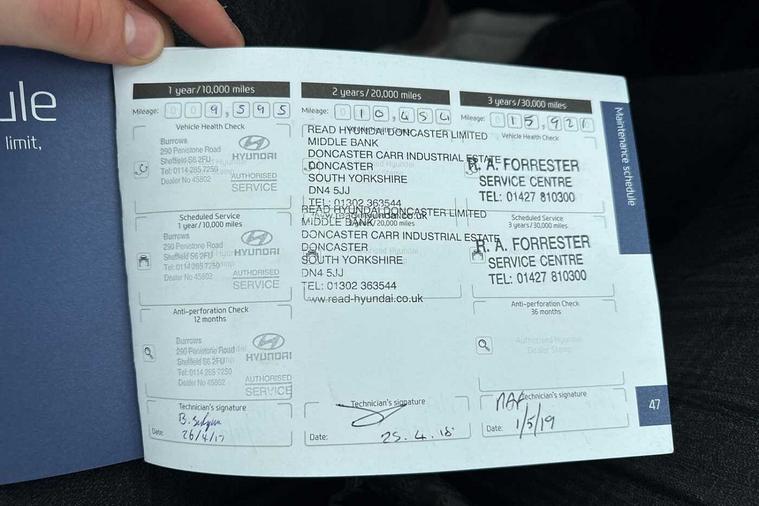 ule
limit,
1 year/10,000 miles
Mileage: 0 0 9, 5 9 5
Vehicle Health Check
Burrows
290 Penistone Road
Sheffield S6 2FU
Tel: 0114 285 7250
Dealer No 45802
HYUNDAI
AUTHORISED
SERVICE
Scheduled Service
1 year/10,000 miles
Burrows
290 Penistone Road
Sheffield S6 2FU
Tel: 0114 285 7250
Dealer No 45802
HYUNDAI
AUTHORISED
SERVICE
Anti-perforation Check
12 months
Burrows
290 Penistone Road
Sheffield S6 2FU
Tel: 0114 285 7250
Dealer No 45802
HYUNDAI
AUTHORISED
SERVICE
Technician's signature
Date: 26/4/17
2 years/20,000 miles
Mileage: 0 1 0, 4 5 4
READ HYUNDAI DONCASTER LIMITED
MIDDLE BANK
DONCASTER CARR INDUSTRIAL ESTATE
DONCASTER
SOUTH YORKSHIRE
DN4 5JJ
TEL: 01302 363544
www.read-hyundai.co.uk
READ HYUNDAI DONCASTER LIMITED
MIDDLE BANK
2 years/20,000 miles
DONCASTER CARR INDUSTRIAL ESTATE
DONCASTER
SOUTH YORKSHIRE
DN4 5JJ
TEL: 01302 363544
www.read-hyundai.co.uk
Technician's signature
Date: 25.4.18
3 years/30,000 miles
Mileage: 0 1 5, 9 2 1
Vehicle Health Check
R. A. FORRESTER
SERVICE CENTRE
TEL: 01427 810300
Scheduled Service
3 years/30,000 miles
R. A. FORRESTER
SERVICE CENTRE
TEL: 01427 810300
Anti-perforation Check
36 months
Authorised Hyundai
Dealer Stamp
Technician's signature
Date: 1/5/19
Maintenance schedule
47